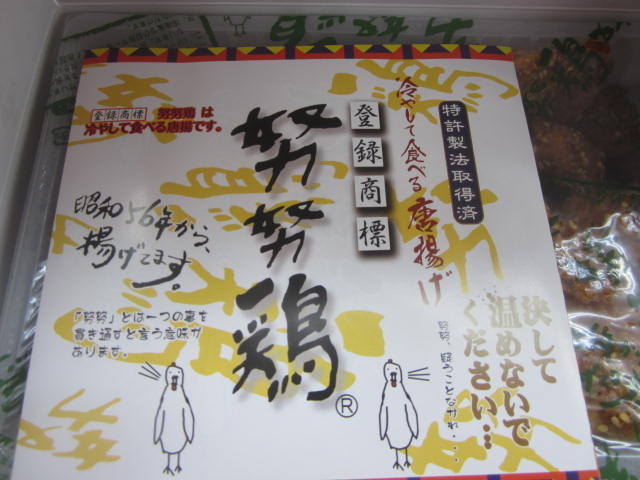 特許製法取得済
冷やして食べる唐揚げ
登録商標
努努鶏
®
登録商標 努努鶏は
冷やして食べる唐揚です。
昭和56年から、
揚げてます。
「努努」とは一つの事を
貫き通すと言う意味が
あります。
決して
温めないで
ください…
努努、疑うことなかれ・・・